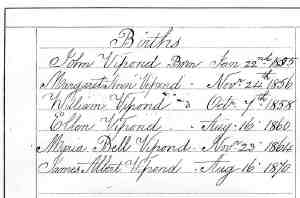 Births
John Vipond Born Jan 22nd 1855
Margaret Ann Vipond " Novr 24th 1856
William Vipond " Octr 7th 1858
Elton Vipond " Aug 16 1860
Maria Bell Vipond " Nov 23 1864
James Albert Vipond " Aug 16 1870